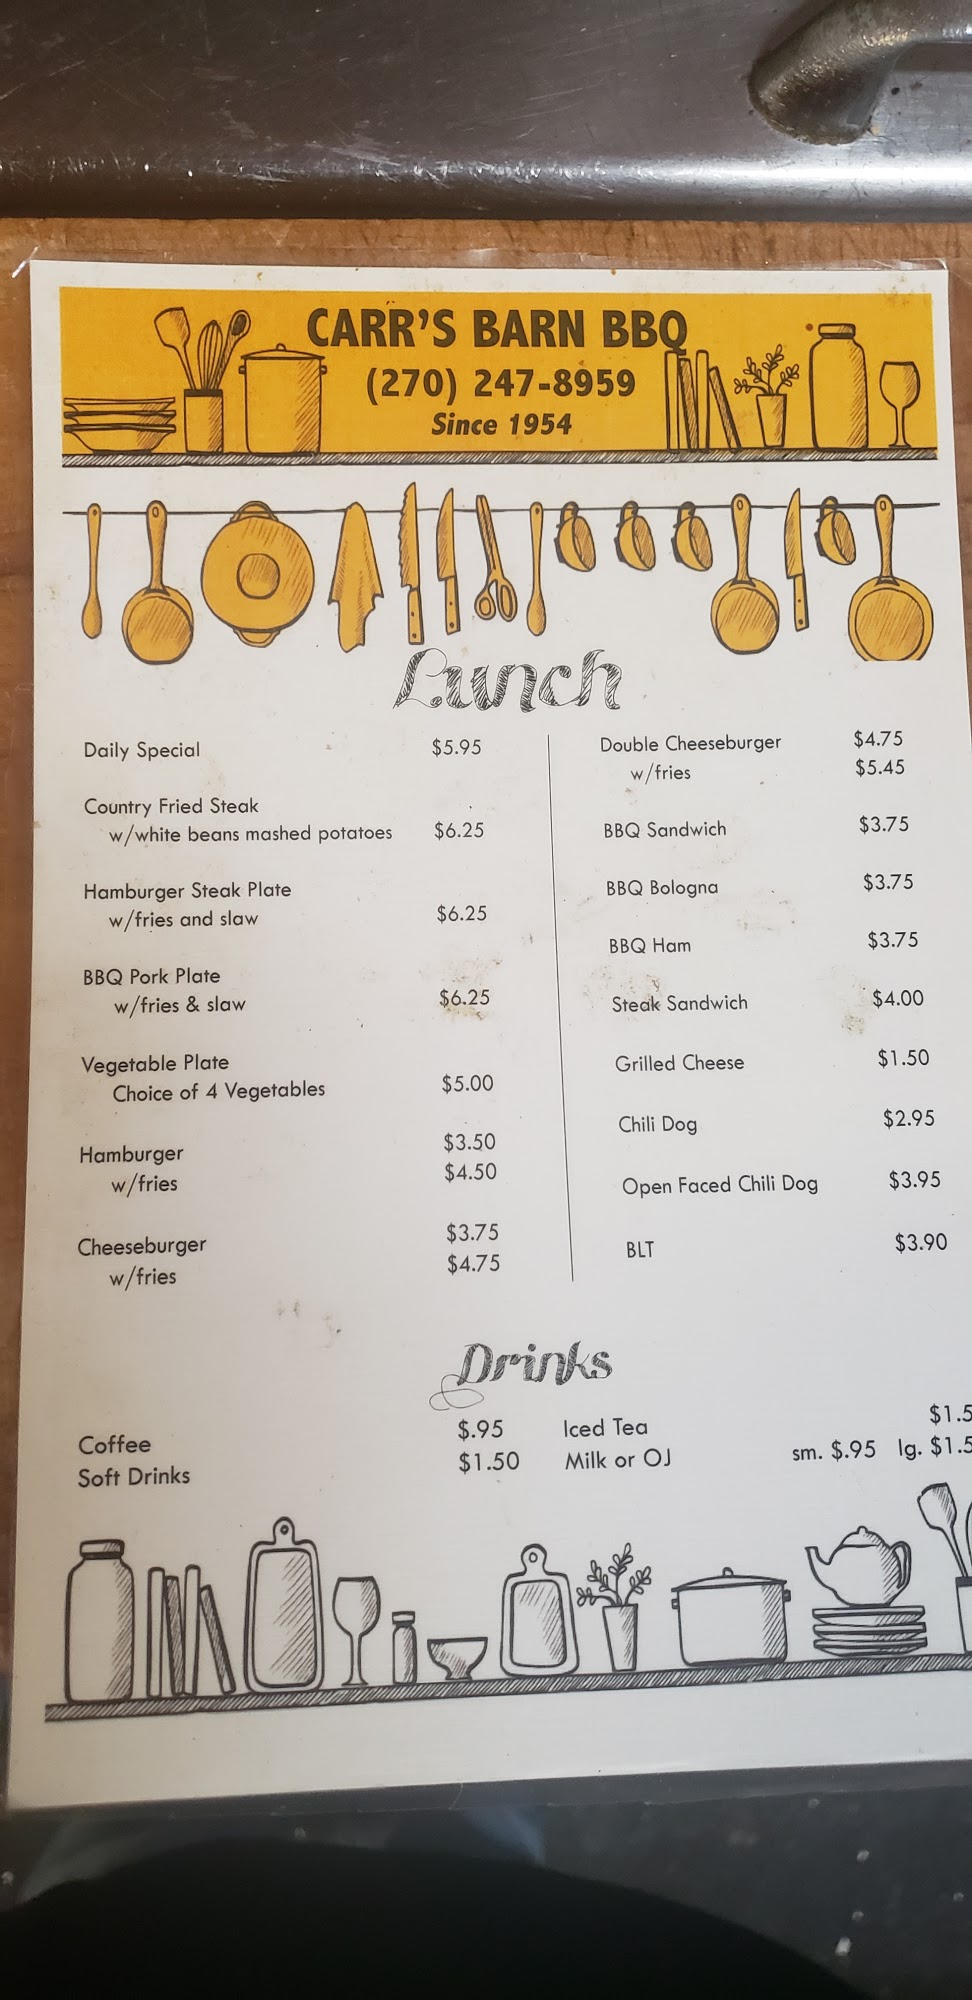 CARR'S BARN BBQ
(270) 247-8959
Since 1954
Lunch
Daily Special $5.95
Country Fried Steak
w/white beans mashed potatoes $6.25
Hamburger Steak Plate
w/fries and slaw $6.25
BBQ Pork Plate
w/fries & slaw $6.25
Vegetable Plate
Choice of 4 Vegetables $5.00
Hamburger $3.50
w/fries $4.50
Cheeseburger $3.75
w/fries $4.75
Double Cheeseburger $4.75
w/fries $5.45
BBQ Sandwich $3.75
BBQ Bologna $3.75
BBQ Ham $3.75
Steak Sandwich $4.00
Grilled Cheese $1.50
Chili Dog $2.95
Open Faced Chili Dog $3.95
BLT $3.90
Drinks
Coffee $.95
Soft Drinks $1.50
Iced Tea $1.5
Milk or OJ sm. $.95 lg. $1.5